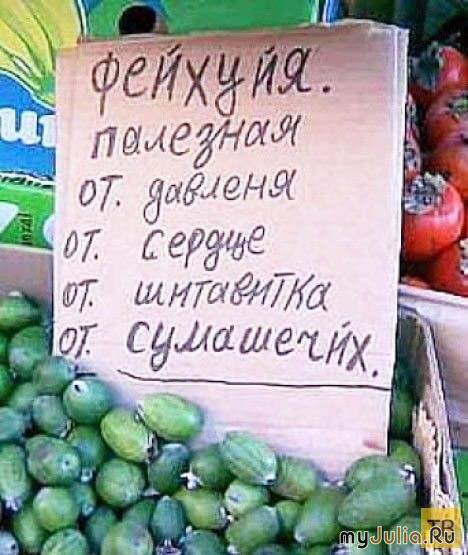 фейхуйя.
палезная
от. давленя
от. Сердце
от. шитавитка
от. сумашечйх.
ТВ
myJulia.Ru